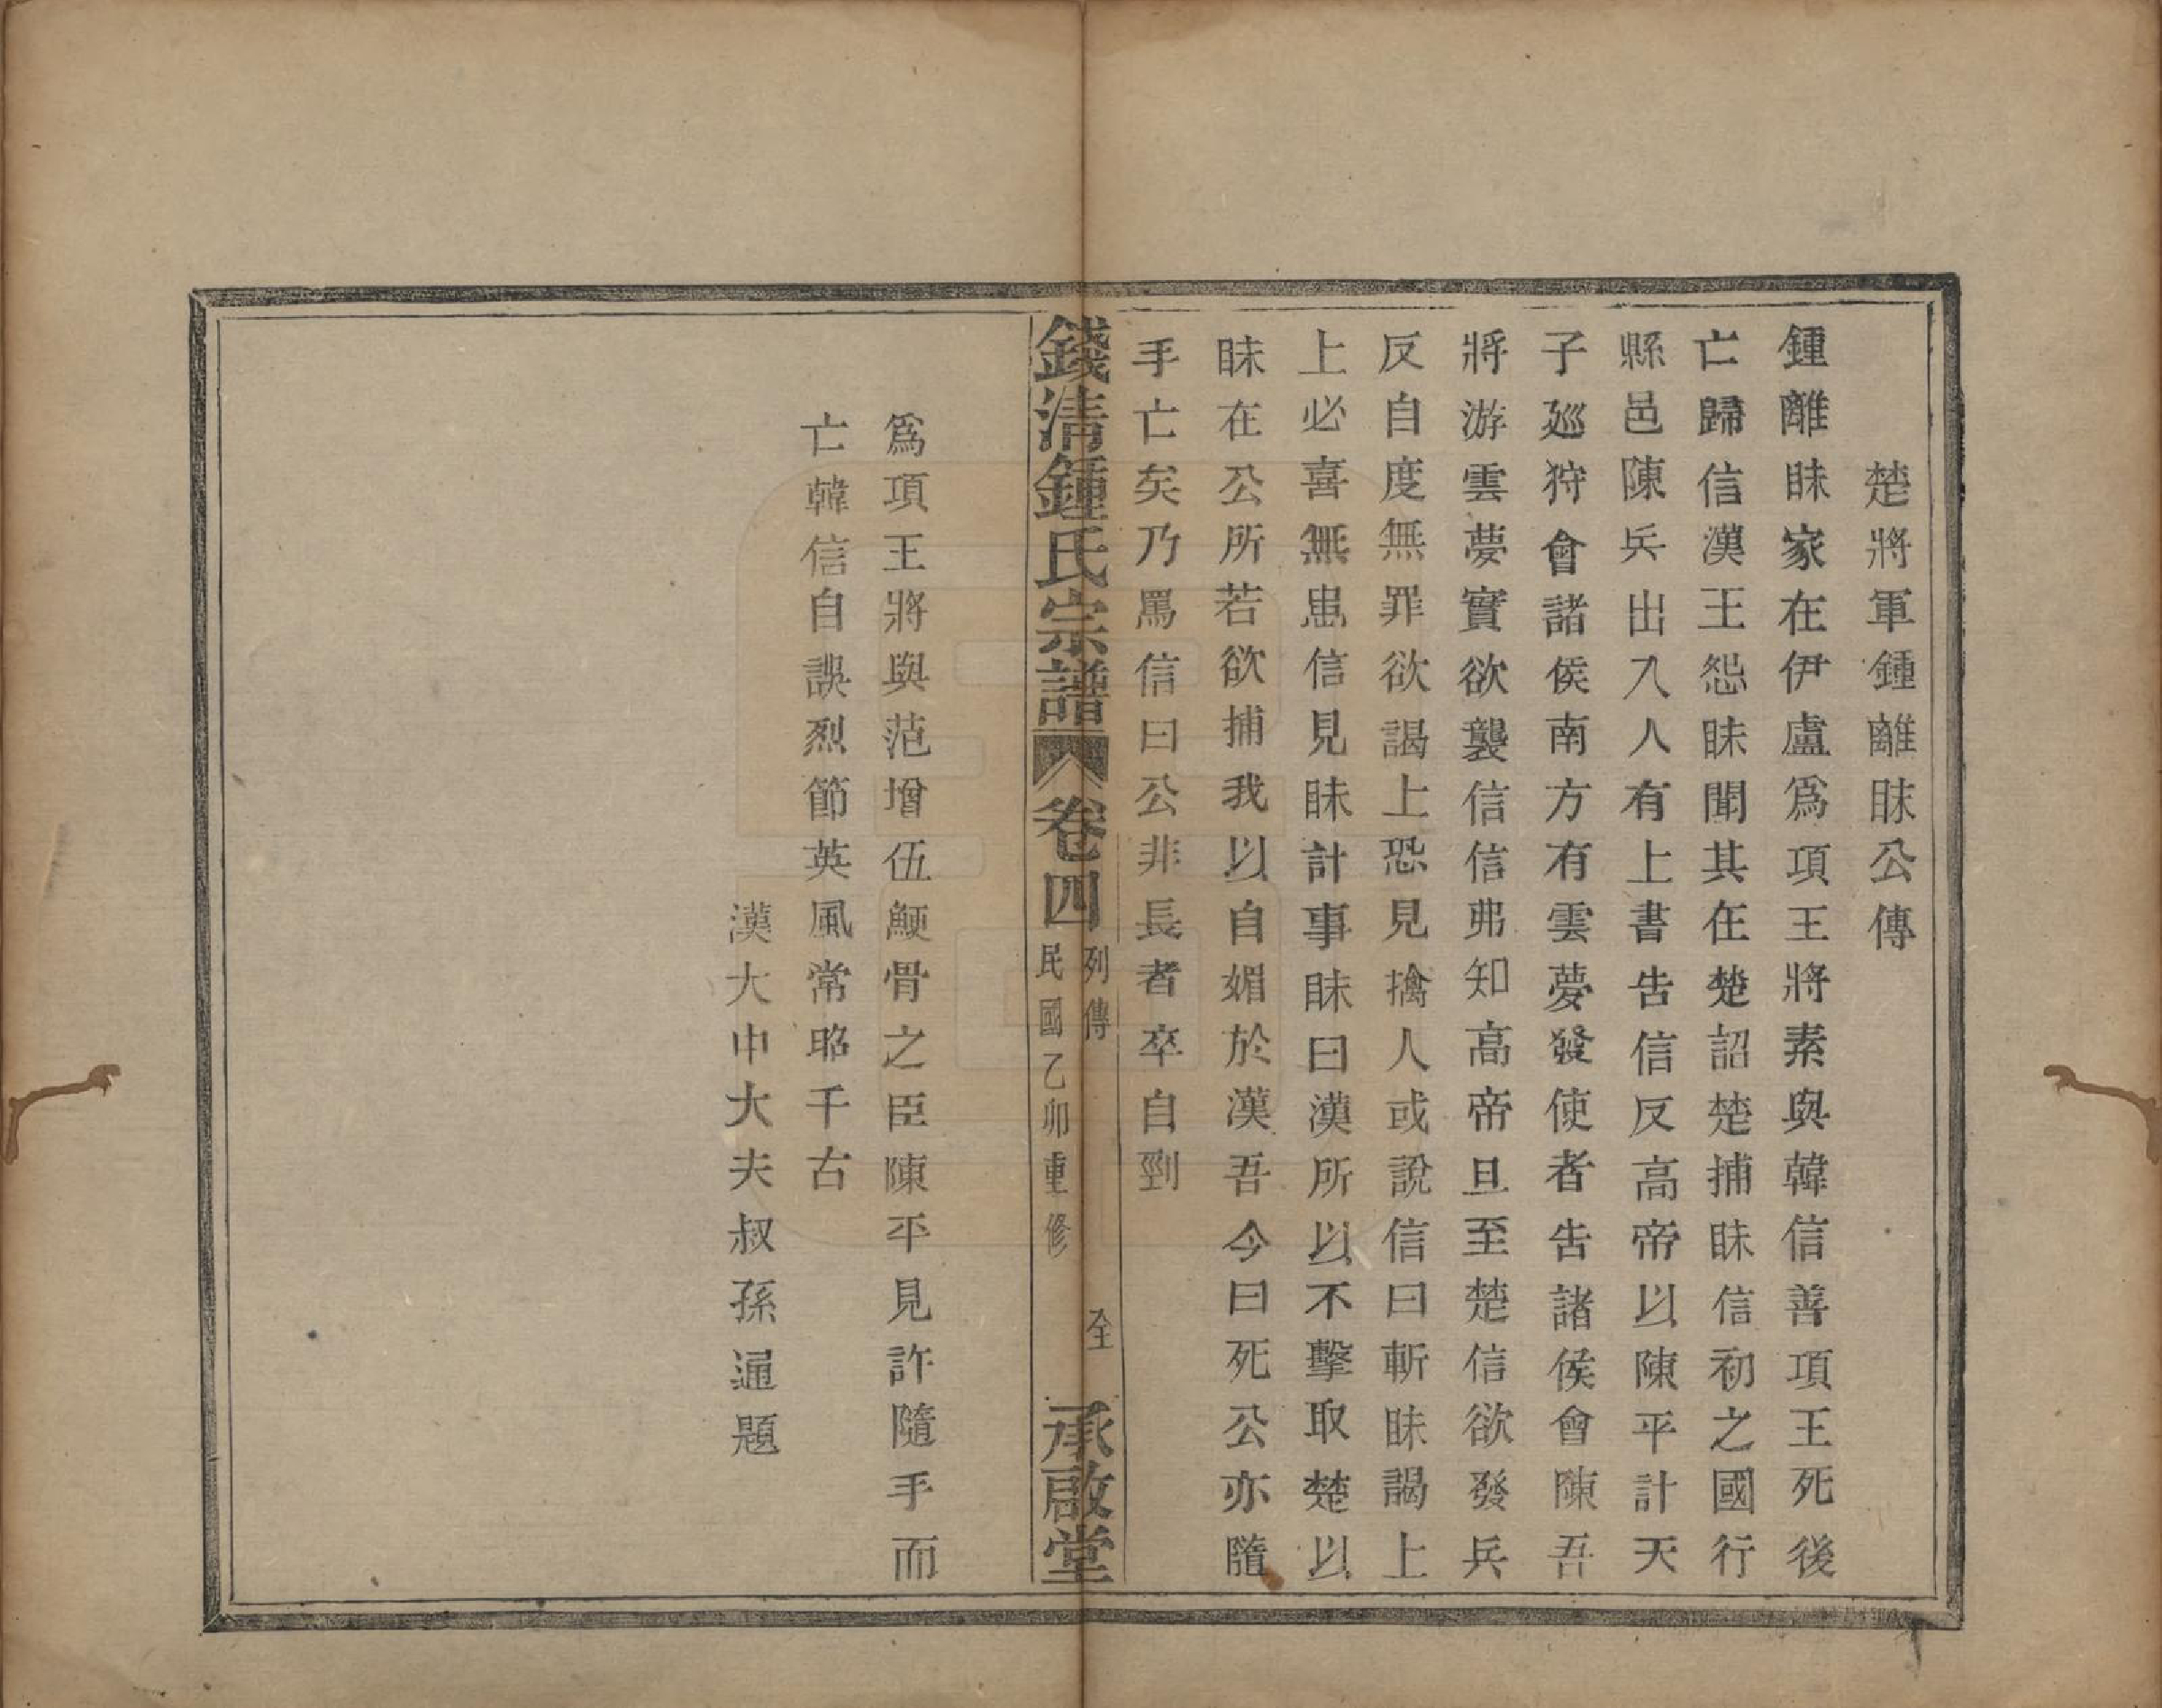 楚將軍鍾離眛公傳
鍾離眛家在伊盧爲項王將素與韓信善項王死後
亡歸信漢王怨眛聞其在楚詔楚捕眛信初之國行
縣邑陳兵出入人有上書告信反高帝以陳平計天
子廵狩會諸侯南方有雲夢發使者告諸侯會陳吾
將游雲夢實欲襲信信弗知高帝旦至楚信欲發兵
反自度無罪欲謁上恐見擒人或說信曰斬眛謁上
上必喜無患信見眛計事眛曰漢所以不擊取楚以
眛在公所若欲捕我以自媚於漢吾今曰死公亦隨
手亡矣乃罵信曰公非長者卒自剄
錢清鍾氏宗譜 卷四 列傳 民國乙卯重修 全 承啟堂
爲項王將與范增伍鯁骨之臣陳平見許隨手而
亡韓信自誤烈節英風常昭千古
漢大中大夫叔孫通題